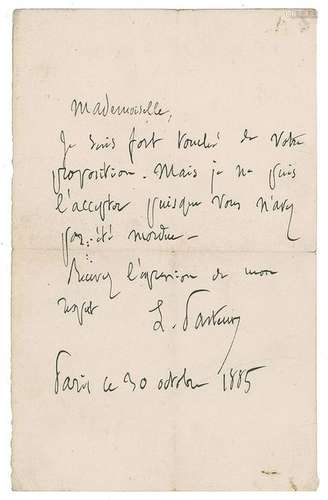 Mademoiselle,
Je suis fort touché de votre
proposition. Mais je ne puis
l'accepter puisque vous n'avez
pas été mordue.
Recevez l'expression de mon
respect
L. Pasteur
Paris ce 30 octobre 1885